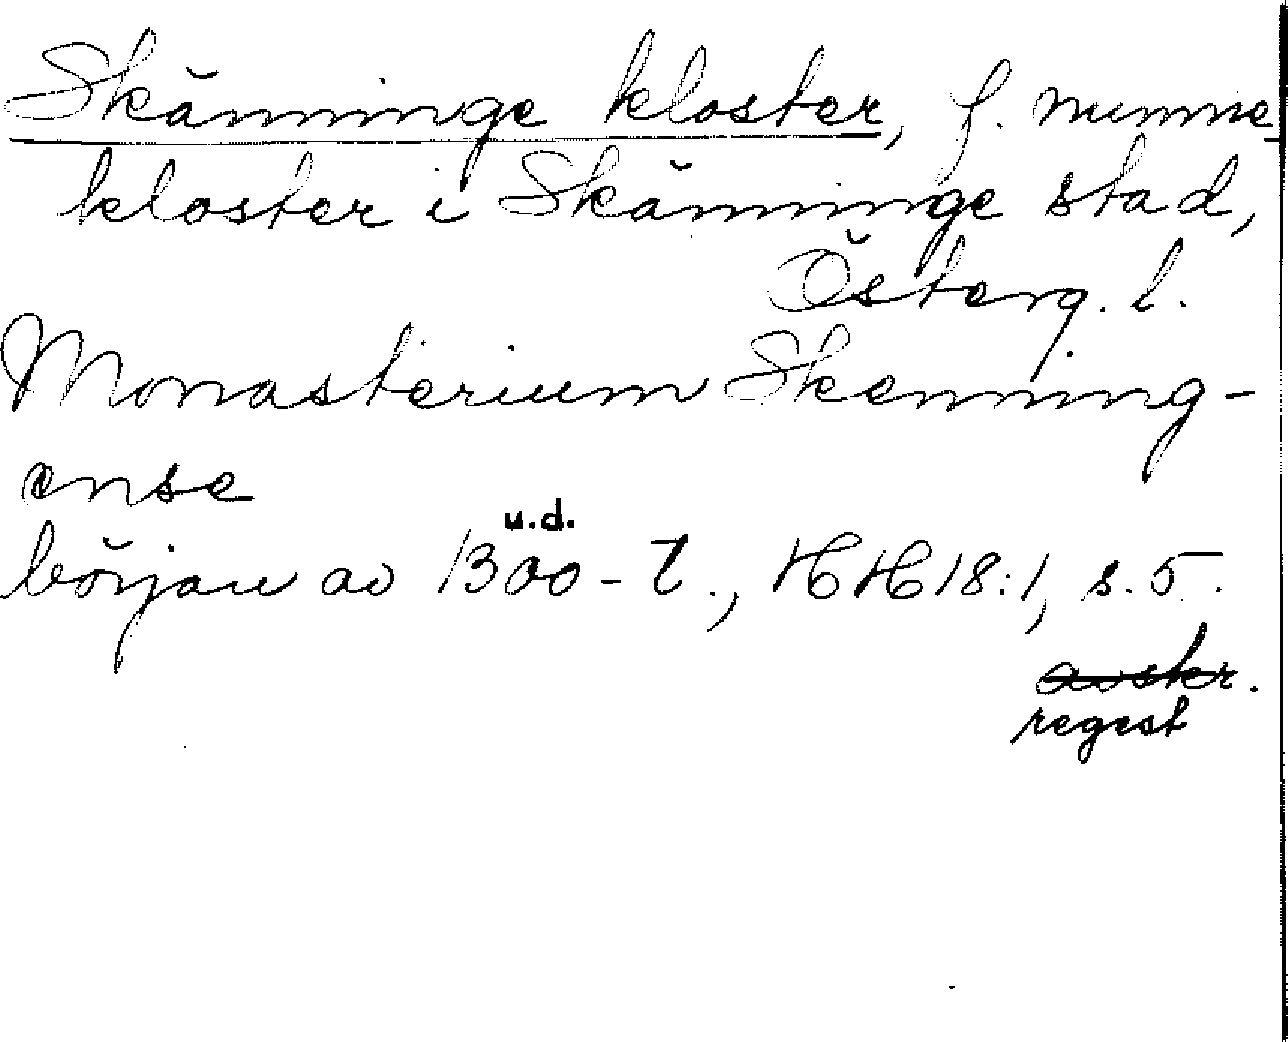 Skänninge kloster, f. nunne-
kloster i Skänninge stad,
Österg. l.
Monasterium Skenning-
ense
u.d.
början av 1300-t., HH 18:1, s. 5.
avskr.
regest